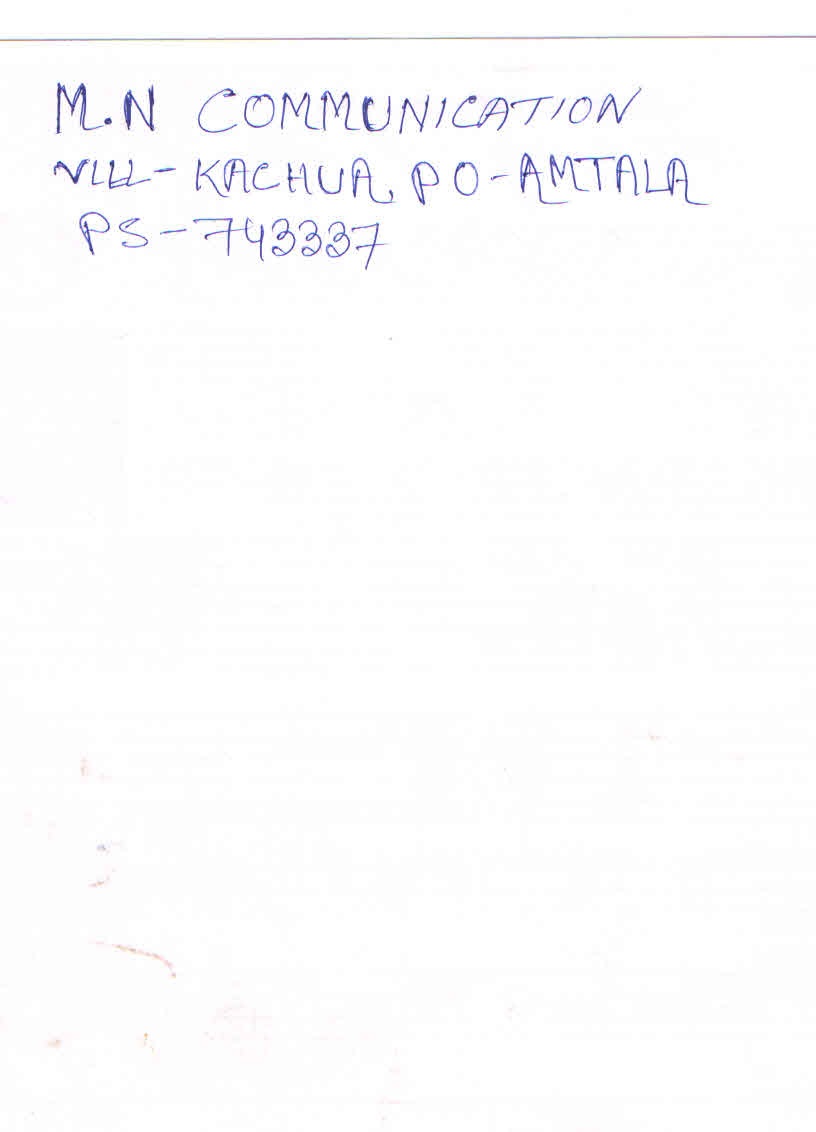 M.N COMMUNICATION
VILL- KACHUA, PO-AMTALA
PS-743337